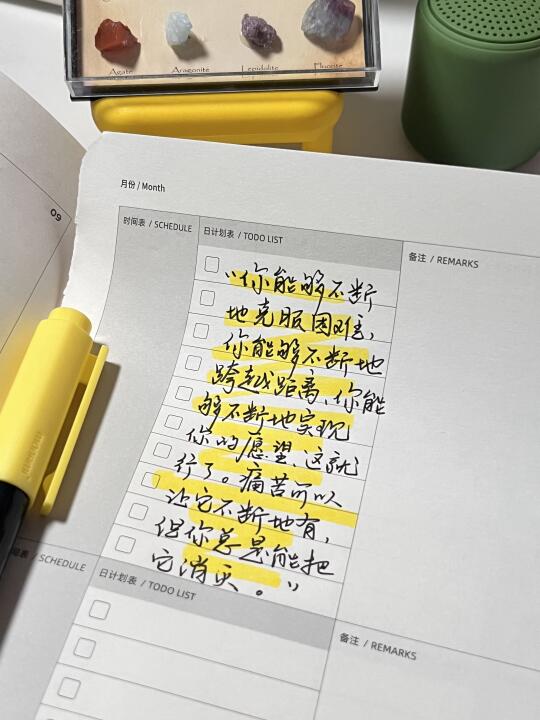 Agate
Aragonite
Lepidolite
Fluorite
09
月份 / Month
时间表 / SCHEDULE
日计划表 / TODO LIST
备注 / REMARKS
“你能够不断
地克服困难,
你能够不断地
跨越距离、你能
够不断地实现
你的愿望、这就
行了。痛苦可以
让它不断地有,
但你总是能把
它消灭。”
间表 / SCHEDULE
日计划表 / TODO LIST
备注 / REMARKS